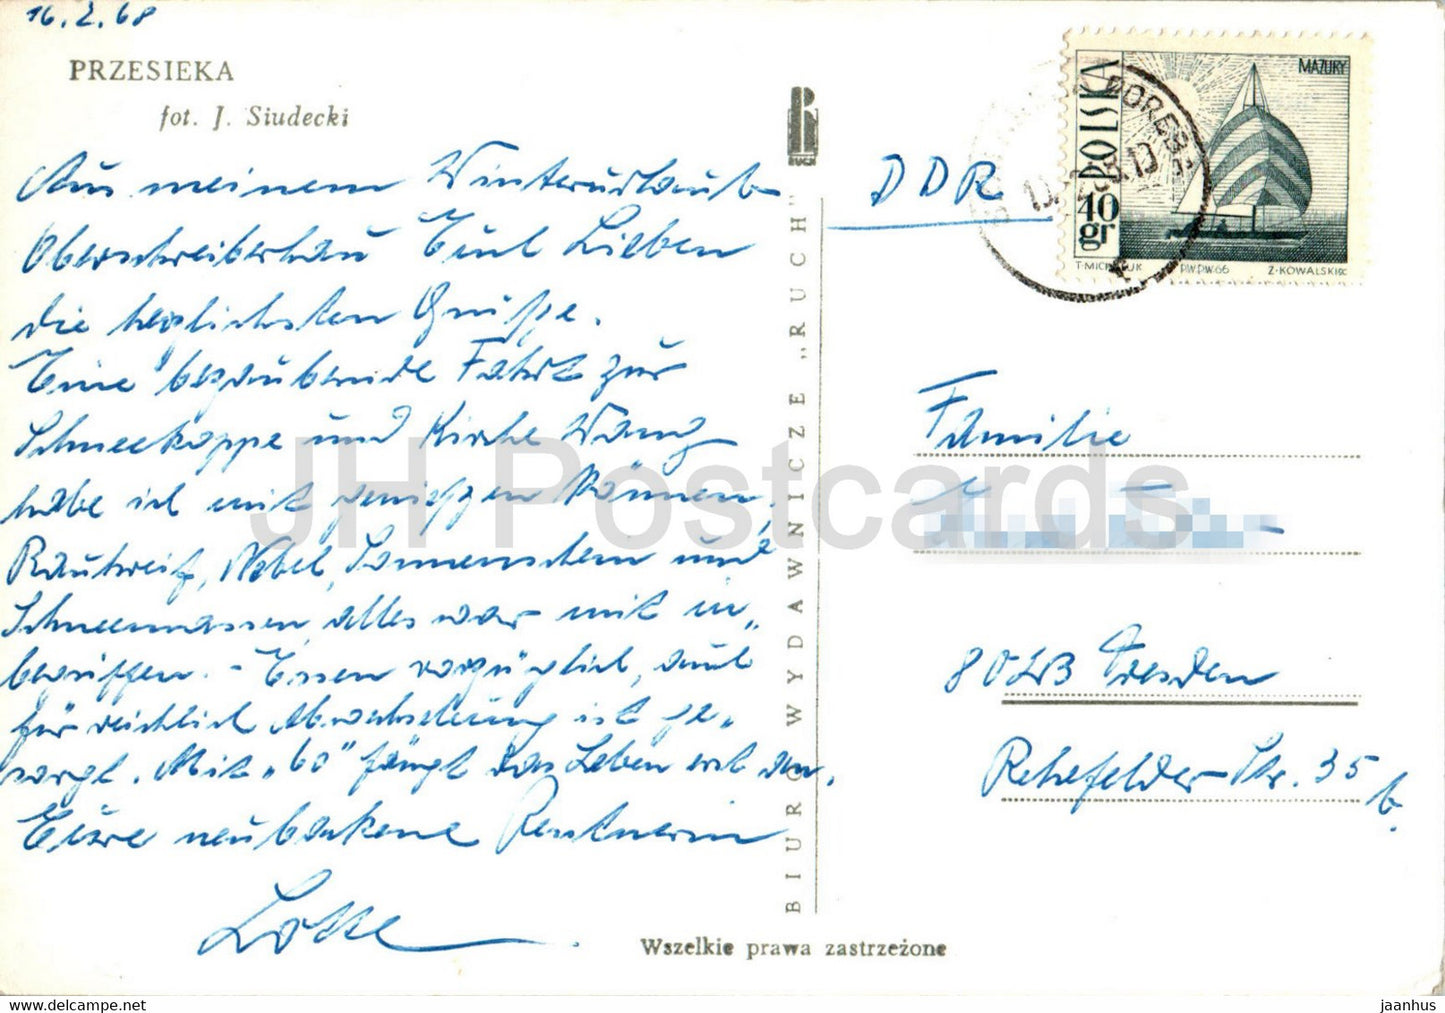 16.2.68
PRZESIEKA
fot. J. Siudecki
Aus meinem Winterurlaub
Oberschreiberhau Euch Lieben
die herzlichsten Grüße.
Eine bezaubernde Fahrt zur
Schneekoppe und Kirche Wang
habe ich mit genießen können,
Rauhreif, Nebel, Sonnenschein und
Schneemassen, alles war mit in„
begriffen. - Essen vorzüglich, auch
für reichlich Abwechslung ist ge„
sorgt. Mit „60" fängt das Leben erst an.
Eure neubackene Rentnerin
Lotte
BIURO WYDAWNICZE „RUCH"
RUCH
Wszelkie prawa zastrzeżone
DDR
POLSKA
40
gr
MAZURY
P.W.P.W. 66
Z. KOWALSKI SC.
Familie
8023 Dresden
Rehefelder-Str. 35 b.
JH Postcards
https://www.jh-postcards.com
jaanhus